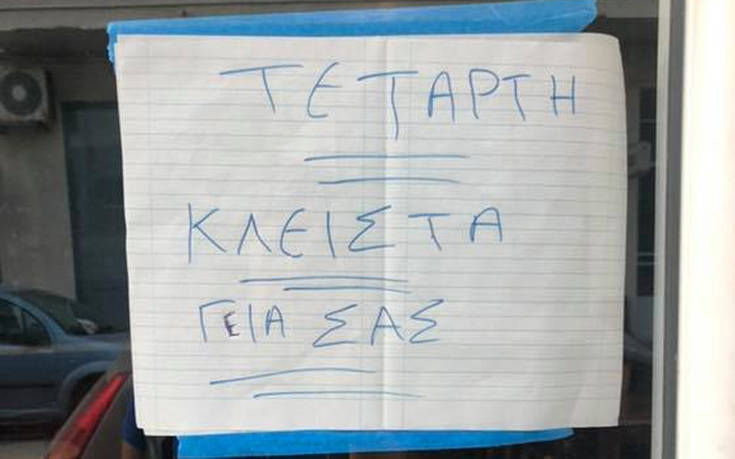 ΤΕΤΑΡΤΗ
ΚΛΕΙΣΤΑ
ΓΕΙΑ ΣΑΣ